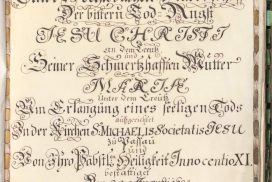 Der bittern Tod-Angst
JESU CHRISTI
an dem Creütz
und
Seiner Schmertzhafften Mutter
MARIÆ
Unter dem Creütz
Um Erlangung eines seeligen Tods
aufgerichtet
In der Kirchen S. MICHAELIS Societatis JESU
zu Passau
Und
Von Ihro Päbstl. Heiligkeit Innocentio XI.
bestättiget